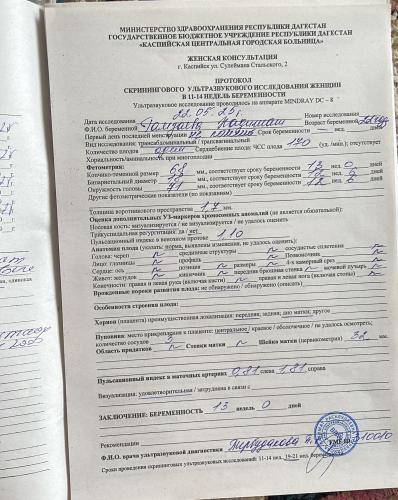 МИНИСТЕРСТВО ЗДРАВООХРАНЕНИЯ РЕСПУБЛИКИ ДАГЕСТАН
ГОСУДАРСТВЕННОЕ БЮДЖЕТНОЕ УЧРЕЖДЕНИЕ РЕСПУБЛИКИ ДАГЕСТАН
«КАСПИЙСКАЯ ЦЕНТРАЛЬНАЯ ГОРОДСКАЯ БОЛЬНИЦА»
ЖЕНСКАЯ КОНСУЛЬТАЦИЯ
г. Каспийск ул. Сулеймана Стальского, 2
ПРОТОКОЛ
СКРИНИНГОВОГО УЛЬТРАЗВУКОВОГО ИССЛЕДОВАНИЯ ЖЕНЩИН
В 11-14 НЕДЕЛЬ БЕРЕМЕННОСТИ
Ультразвуковое исследование проводилось на аппарате MINDRAY DC – 8
Дата исследования 22.05.25г. Номер исследования
Ф.И.О. беременной Возраст беременной
Первый день последней менструации не помнит Срок беременности – нед. дней
Вид исследования: трансабдоминальный / трансвагинальный
Количество плодов один Сердцебиение плода: ЧСС плода 170 (уд./мин.); отсутствует
Хориальность/амниальность при многоплодии
Фетометрия:
Копчико-теменной размер 68 мм, соответствует сроку беременности 13 нед. 0 дней
Бипариетальный диаметр мм, соответствует сроку беременности нед. дней
Окружность головы мм, соответствует сроку беременности нед. дней
Другие фетометрические показатели (по показаниям)
Толщина воротникового пространства 1,7 мм.
Оценка дополнительных УЗ-маркеров хромосомных аномалий (не является обязательной):
Носовая кость: визуализируется / не визуализируется / не удалось оценить
Трикуспидальная регургитация: да / нет
Пульсационный индекс в венозном протоке 1.10
Анатомия плода (указать: норма, выявлены изменения, не удалось оценить):
Голова: череп N срединные структуры N сосудистые сплетения N
Лицо: глазницы N профиль N Позвоночник N
Сердце: ось N позиция N размеры N 4-х камерный срез N
Живот: желудок N кишечник N передняя брюшная стенка N мочевой пузырь N
Конечности: правая и левая рука (включая кисти) N правая и левая нога (включая стопы) N
Врожденные пороки развития плода: не обнаружено / обнаружено (описать)
Особенности строения плода:
Хорион (плацента) преимущественная локализация: передняя; задняя; дно матки; другое
Пуповина: место прикрепления к плаценте: центральное / краевое / оболочечное / не удалось осмотреть;
количество сосудов 3
Область придатков N Стенки матки N Шейка матки (цервикометрия) 32 мм.
Пульсационный индекс в маточных артериях 0,81 слева 1,81 справа
Визуализация: удовлетворительная / затруднена в связи с
ЗАКЛЮЧЕНИЕ: БЕРЕМЕННОСТЬ 13 недель 0 дней
Рекомендации
Ф.И.О. врача ультразвуковой диагностики
Сроки проведения скрининговых ультразвуковых исследований: 11-14 нед., 19-21 нед. беременности